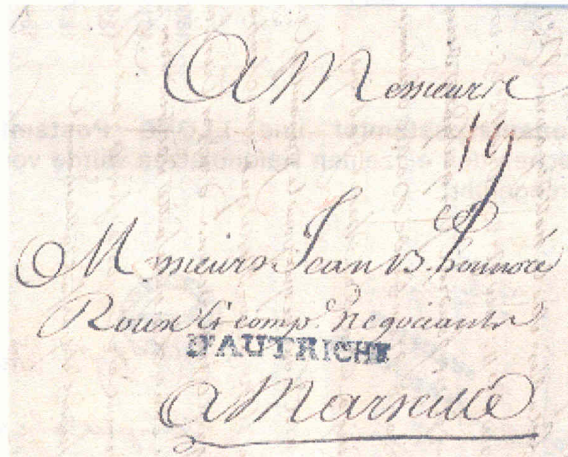 A Messieurs
19
Messieurs Jean B. honnoré
Roux & comp.e negociants
D'AUTRICHE
A Marseille